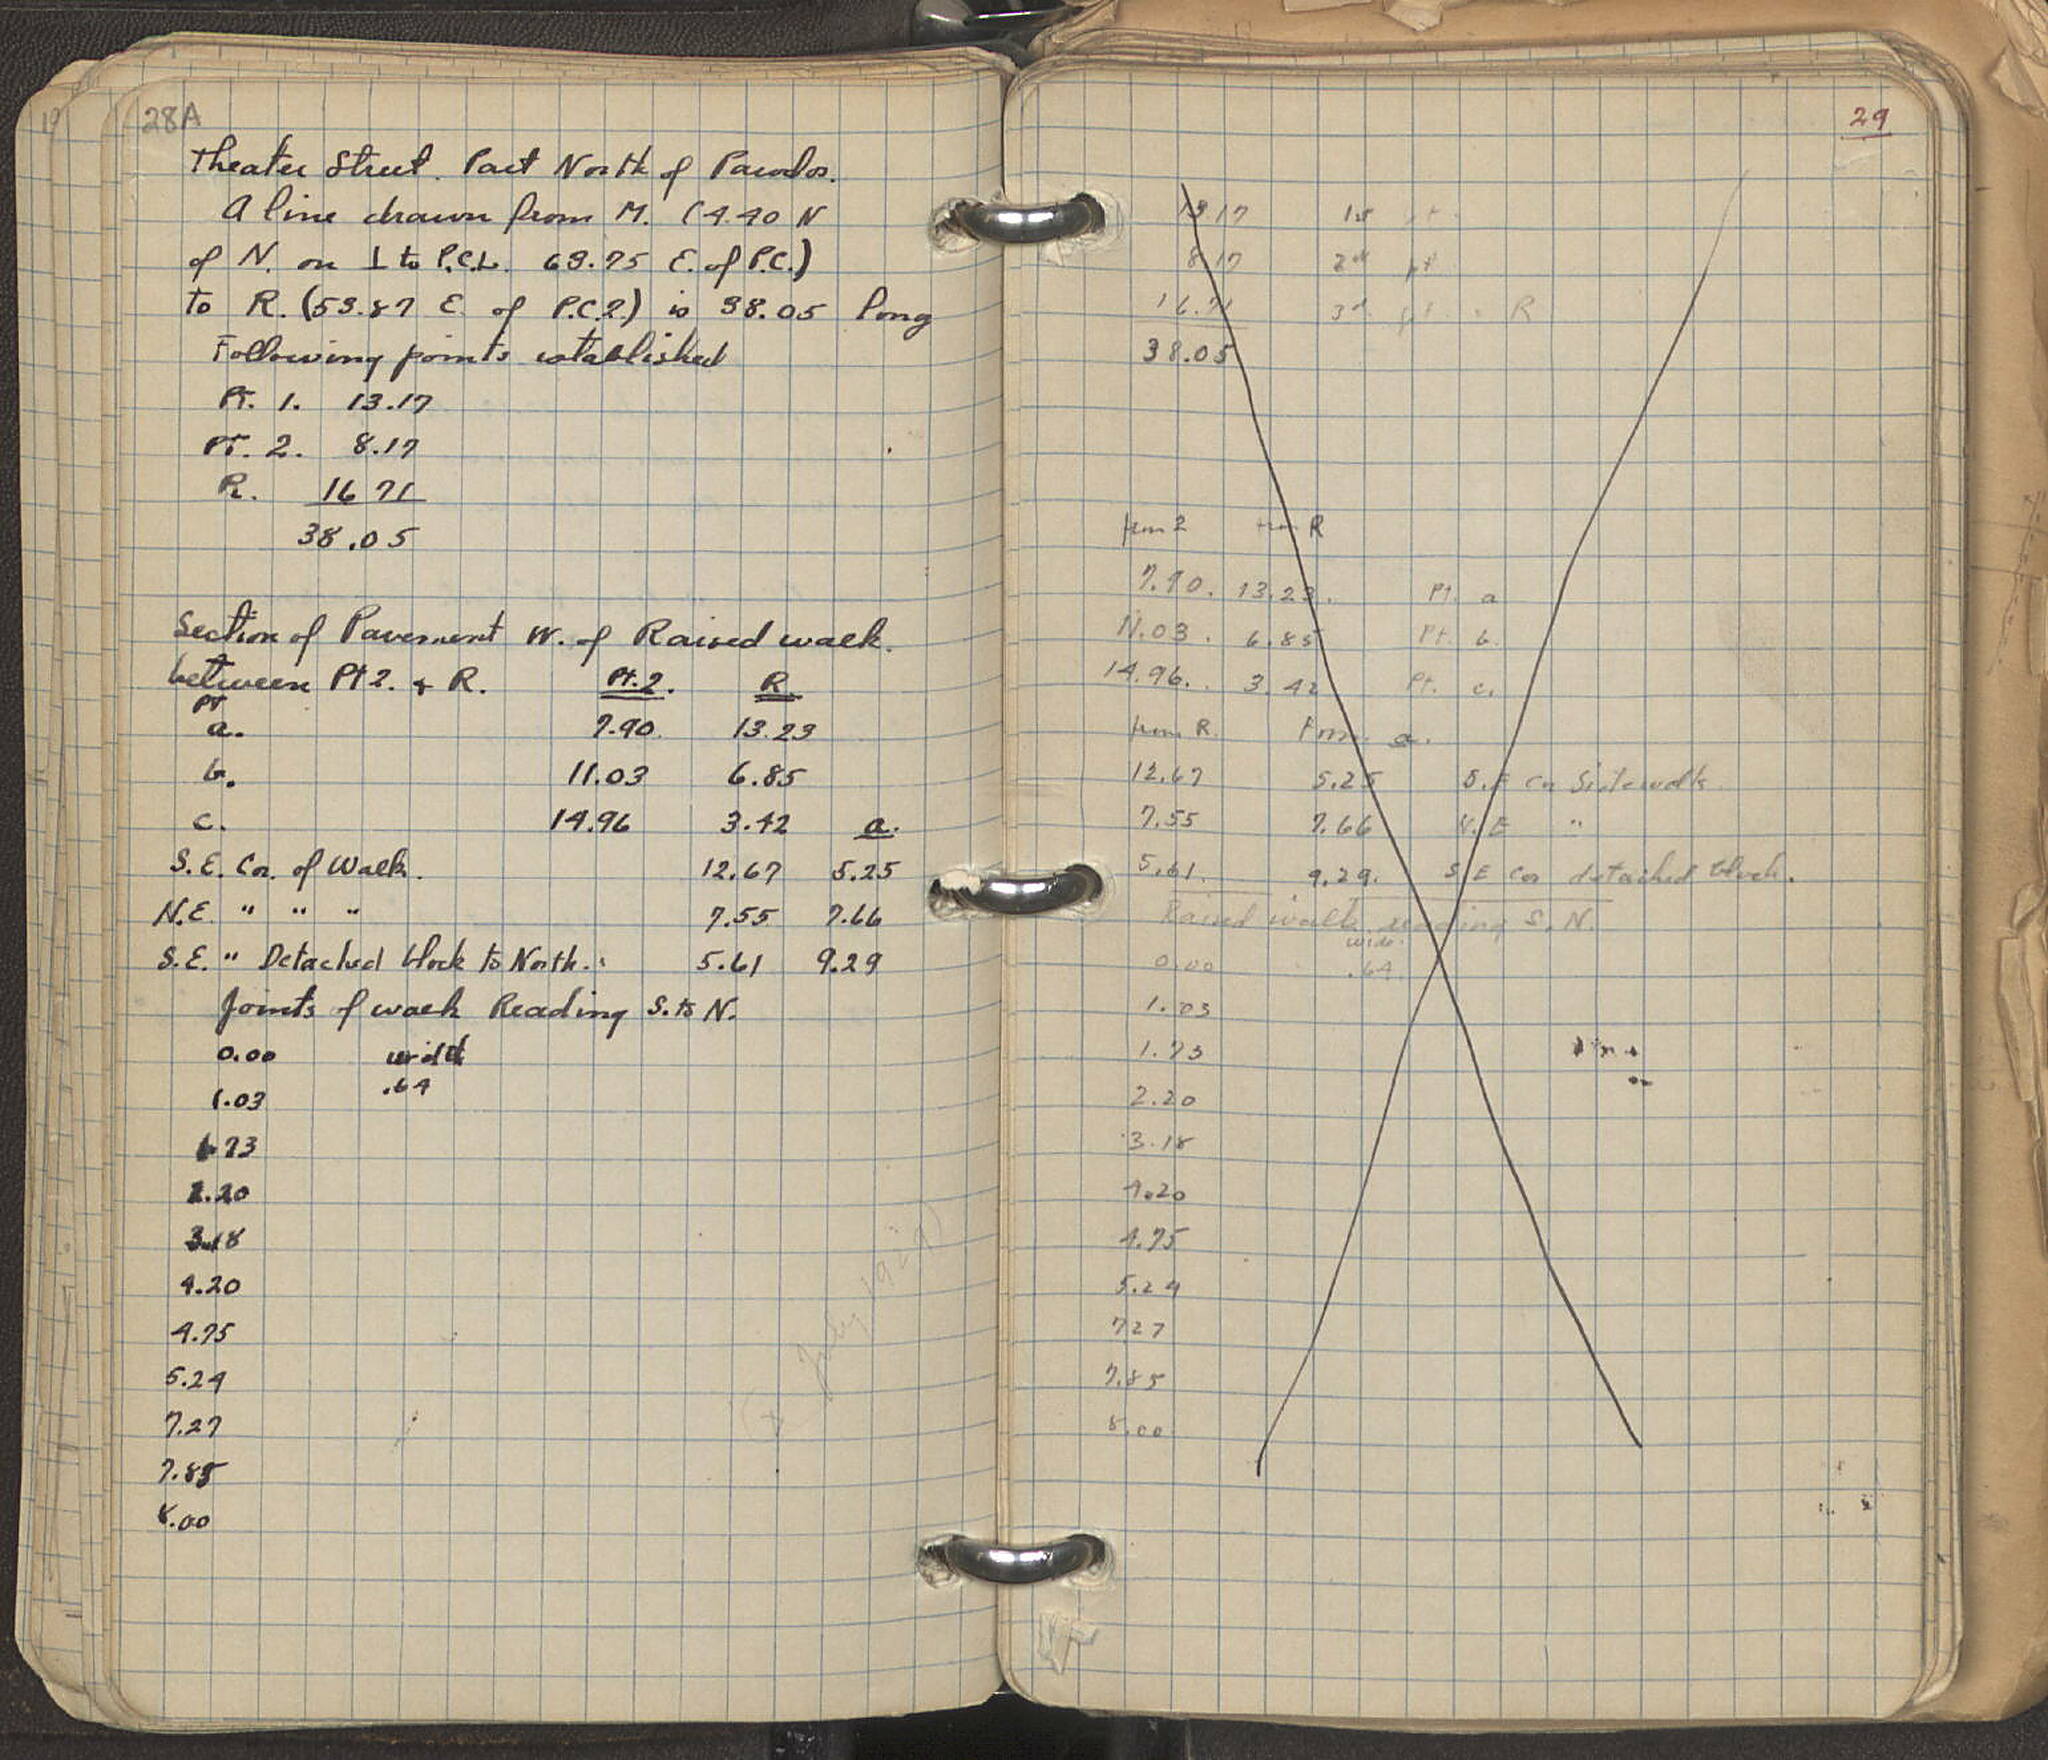 28A
Theater Street. Part North of Parodos.
A line drawn from M. (4.40 N
of N. on ⊥ to P.C.L. 63.75 E. of P.C.)
to R. (53.87 E. of P.C.2.) is 38.05 long
Following points established
Pt. 1. 13.17
Pt. 2. 8.17
R. 16 71
38.05
Section of Pavement W. of Raised walk.
between Pt 2. + R. Pt. 2. R.
Pt
a. 7.90. 13.23
b. 11.03 6.85
c. 14.96 3.42 a.
S.E. Cor. of Walk. 12.67 5.25
N.E. " " " 7.55 7.66
S.E. " Detached block to North. 5.61 9.29
Joints of walk Reading S. to N.
0.00 width
.64
1.03
1.73
2.20
3.18
4.20
4.75
5.24
7.27
7.85
8.00
July 1929)
29
13.17 1st pt.
8.17 2nd pt
16.71 3d pt. R
38.05
from 2 from R
7.90. 13.23. Pt. a
11.03. 6.85 Pt. b.
14.96. 3.42 Pt. c.
from R. from a.
12.67 5.25 S.E Cor Sidewalk.
7.55 7.66 N.E "
5.61. 9.29. S.E Cor detached block.
Raised walk reading S. N.
wide.
0.00 .64.
1.03
1.73
2.20
3.18
4.20
4.75
5.24
727
7.85
8.00